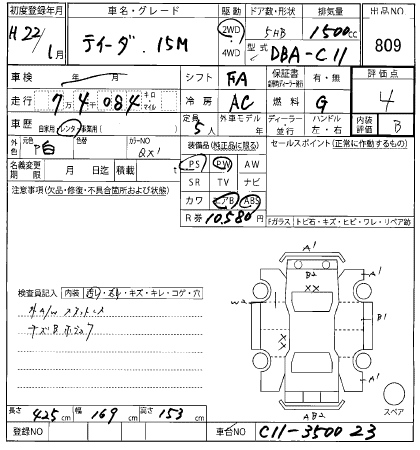 初度登録年月 車名・グレード 駆動 ドア数・形状 排気量 出品NO
H 22/1月 ティーダ. 15M 2WD・4WD 5HB 1500cc 809
型式 DBA-C11
車検 年 月 シフト FA 保証書 有・無 評価点
走行 7万4千084 キロ・マイル 冷房 AC 燃料 G 4
車歴 自家用・レンタ・事業用( ) 定員 5人 外車モデル 年 ディーラー・並行 ハンドル 左・右 内装評価 B
外色 元色 P白 色替 カラーNO QX1 装備品(純正品に限る) セールスポイント(正常に作動するもの)
名義変更期限 月 日迄 積載 t PS PW AW
SR TV ナビ
注意事項(欠品・修復・不具合箇所および状態) カワ エアB ABS
R券 10.580円 Fガラス トビ石・キズ・ヒビ・ワレ・リペア跡
A1
B2
A1
検査員記入 内装 ・キズ・キレ・コゲ・穴
W2
XX
B1
XX
XX
A1
AB2
スペア
長さ 425cm 幅 169cm 高さ 153cm
登録NO 車台NO C11-350023